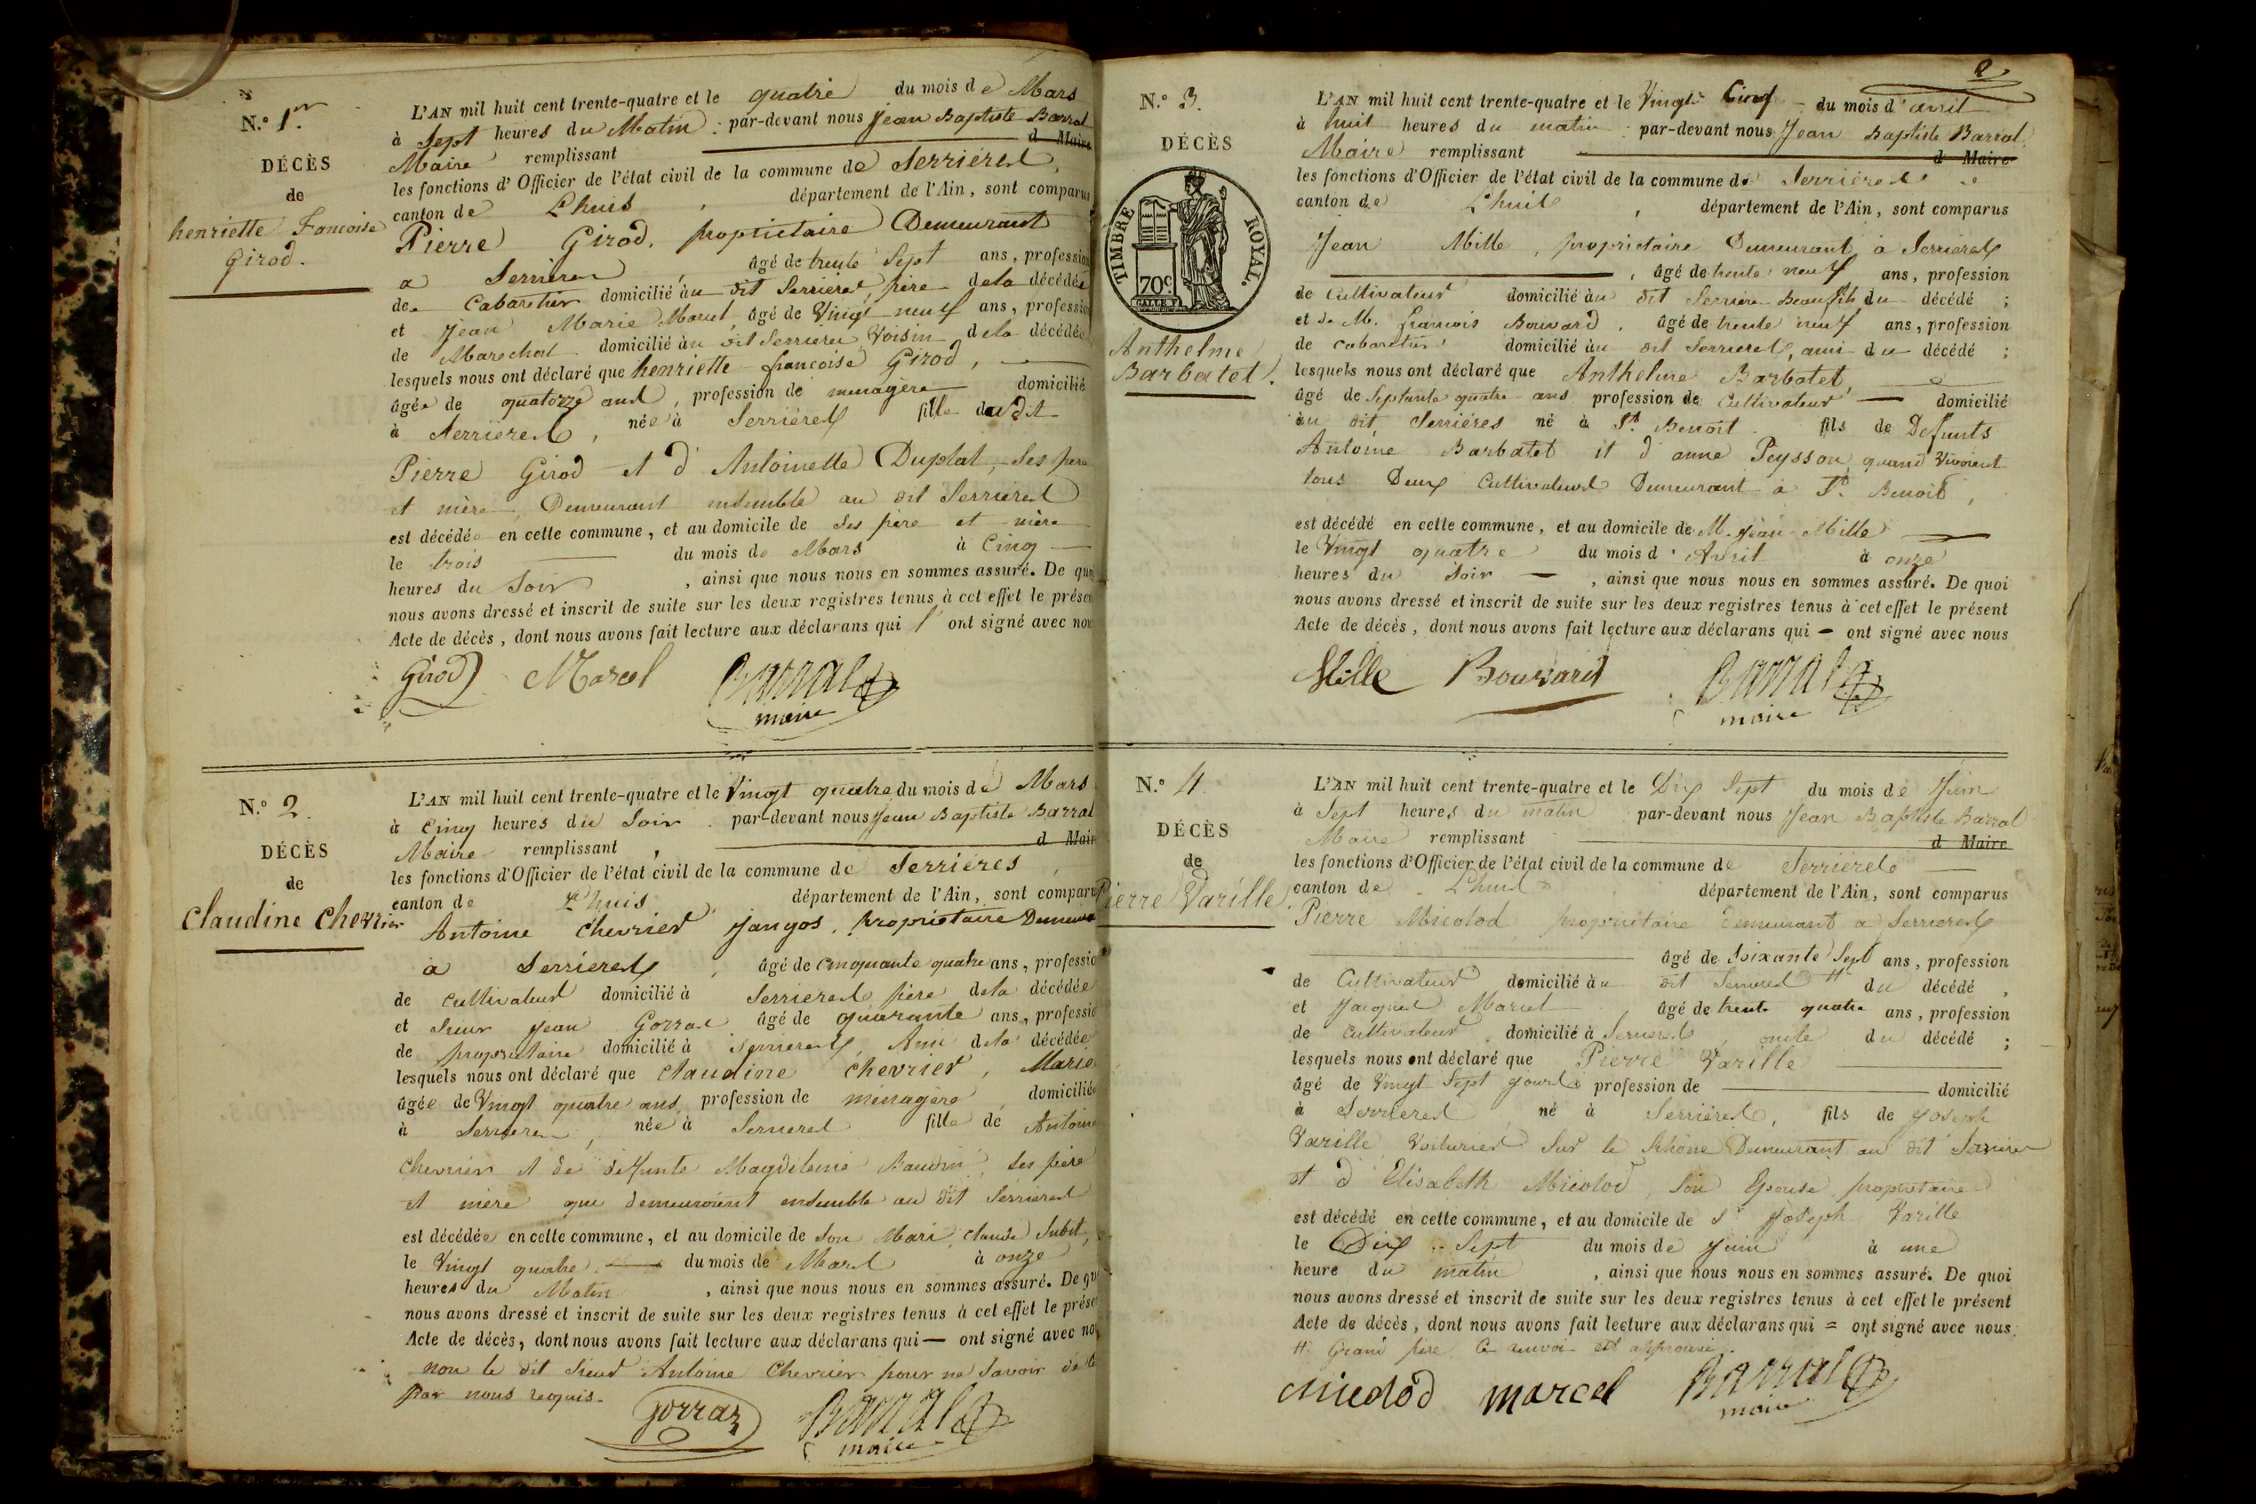 N.º 1.er
DÉCÈS
de
henriette Francoise
Girod.
L'AN mil huit cent trente-quatre et le quatre du mois de Mars
à Sept heures du Matin . par-devant nous Jean Baptiste Barral
Maire remplissant d Maire
les fonctions d'Officier de l'état civil de la commune de Serrières,
canton de Lhuis , département de l'Ain, sont comparus
Pierre Girod, propriétaire Demeurant
a Serrieres , âgé de trente Sept ans, profession
de Cabaretier domicilié àu dit Serrieres père dela décédée
et Jean Marie Marcel, âgé de Vingt neuf ans, profession
de Marechal domicilié àu dit Serrieres Voisin dela décédée
lesquels nous ont déclaré que henriette francoise Girod,
âgée de quatorze ans, profession de menagère domicilié
à Serrieres, née à Serrieres fille dudit
Pierre Girod et d'Antoinette Duplat, Ses père
et mère, Demeurant ensemble au dit Serrieres
est décédée en cette commune, et au domicile de Ses père et mère
le trois du mois de Mars à Cinq
heures du Soir , ainsi que nous nous en sommes assuré. De quoi
nous avons dressé et inscrit de suite sur les deux registres tenus à cet effet le présen
Acte de décès, dont nous avons fait lecture aux déclarans qui ont signé avec nou
Girod Marcel Barral
maire
N.º 2.
DÉCÈS
de
Claudine Chevrier
L'AN mil huit cent trente-quatre et le Vingt quatre du mois de Mars
à Cinq heures du Soir . par-devant nous Jean Baptiste Barral
Maire remplissant , d Maire
les fonctions d'Officier de l'état civil de la commune de Serrières
canton de Lhuis département de l'Ain, sont comparu
Antoine Chevrier Jangos, propriétaire Demeura
a Serrieres , âgé de Cinquante quatre ans, professio
de Cultivateur domicilié à Serrieres père dela décédée
et Sieur Jean Gorraz âgé de quarante ans, professio
de propriétaire domicilié à Serrieres, Ami dela décédée
lesquels nous ont déclaré que Claudine Chevrier, Mariée
âgée de Vingt quatre ans, profession de menagère, domiciliée
à Serrieres, née à Serrieres fille de Antoine
Chevrier et de deffunte Magdeleine Baudin, Ses père
et mère qui demeuroient ensemble au dit Serrieres
est décédée en cette commune, et au domicile de Son Mari Claude Subit,
le Vingt quatre du mois de Mars à onze
heures du Matin , ainsi que nous nous en sommes assuré. De qu
nous avons dressé et inscrit de suite sur les deux registres tenus à cet effet le prése
Acte de décès, dont nous avons fait lecture aux déclarans qui — ont signé avec no
non le dit Sieur Antoine Chevrier pour ne Savoir de ce
par nous requis.
Gorraz Barral
maire
2
N.º 3.
DÉCÈS
TIMBRE ROYAL.
70c.
Anthelme
Barbatet.
L'AN mil huit cent trente-quatre et le Vingt Cinq du mois d'avril
à huit heures du matin : par-devant nous Jean Baptiste Barral
Maire remplissant d Maire
les fonctions d'Officier de l'état civil de la commune de Serrieres
canton de Lhuis , département de l'Ain, sont comparus
Jean Mille, propriétaire Demeurant à Serrieres
, âgé de trente neuf ans, profession
de Cultivateur domicilié àu dit Serrieres Beau fils du décédé ;
et de M. francois Bouvard, âgé de trente neuf ans, profession
de cabaretier domicilié àu dit Serrieres, ami du décédé ;
lesquels nous ont déclaré que Anthelme Barbatet,
âgé de Septante quatre ans profession de Cultivateur — domicilié
àu dit Serrières né à St. Benoit . fils de Defunts
Antoine Barbatet et d'anne Peysson, quand Vivoient
tous Deux Cultivateurs Demeurant à St. Benoit,
est décédé en cette commune, et au domicile de M. Jean Mille
le Vingt quatre du mois d'Avril à onze
heures du Soir — , ainsi que nous nous en sommes assuré. De quoi
nous avons dressé et inscrit de suite sur les deux registres tenus à cet effet le présent
Acte de décès, dont nous avons fait lecture aux déclarans qui — ont signé avec nous
Mille Bouvard Barral
maire
N.º 4.
DÉCÈS
de
Pierre Varille
L'AN mil huit cent trente-quatre et le Dix Sept du mois de Juin
à Sept heures du matin par-devant nous Jean Baptiste Barral
Maire remplissant d Maire
les fonctions d'Officier de l'état civil de la commune de Serrieres
canton de Lhuis département de l'Ain, sont comparus
Pierre Micolod, propriétaire demeurant a Serrieres
âgé de Soixante Sept ans, profession
de Cultivateur domicilié àu dit Serrieres # du décédé ,
et Jacques Marcel âgé de trente quatre ans, profession
de Cultivateur, domicilié à Serrieres, oncle du décédé ;
lesquels nous ont déclaré que Pierre Varille
âgé de Vingt Sept jours profession de domicilié
à Serrieres né à Serrieres, fils de Joseph
Varille Voiturier Sur le Rhône Demeurant au dit Serrieres
et d'Elisabeth Micolod Son Epouse propriétaire
est décédé en cette commune, et au domicile de Sr Joseph Varille
le Dix Sept du mois de Juin à une
heure du matin , ainsi que nous nous en sommes assuré. De quoi
nous avons dressé et inscrit de suite sur les deux registres tenus à cet effet le présent
Acte de décès, dont nous avons fait lecture aux déclarans qui = ont signé avec nous.
# Grand père Ce renvoi est approuvé.
Micolod Marcel Barral
maire